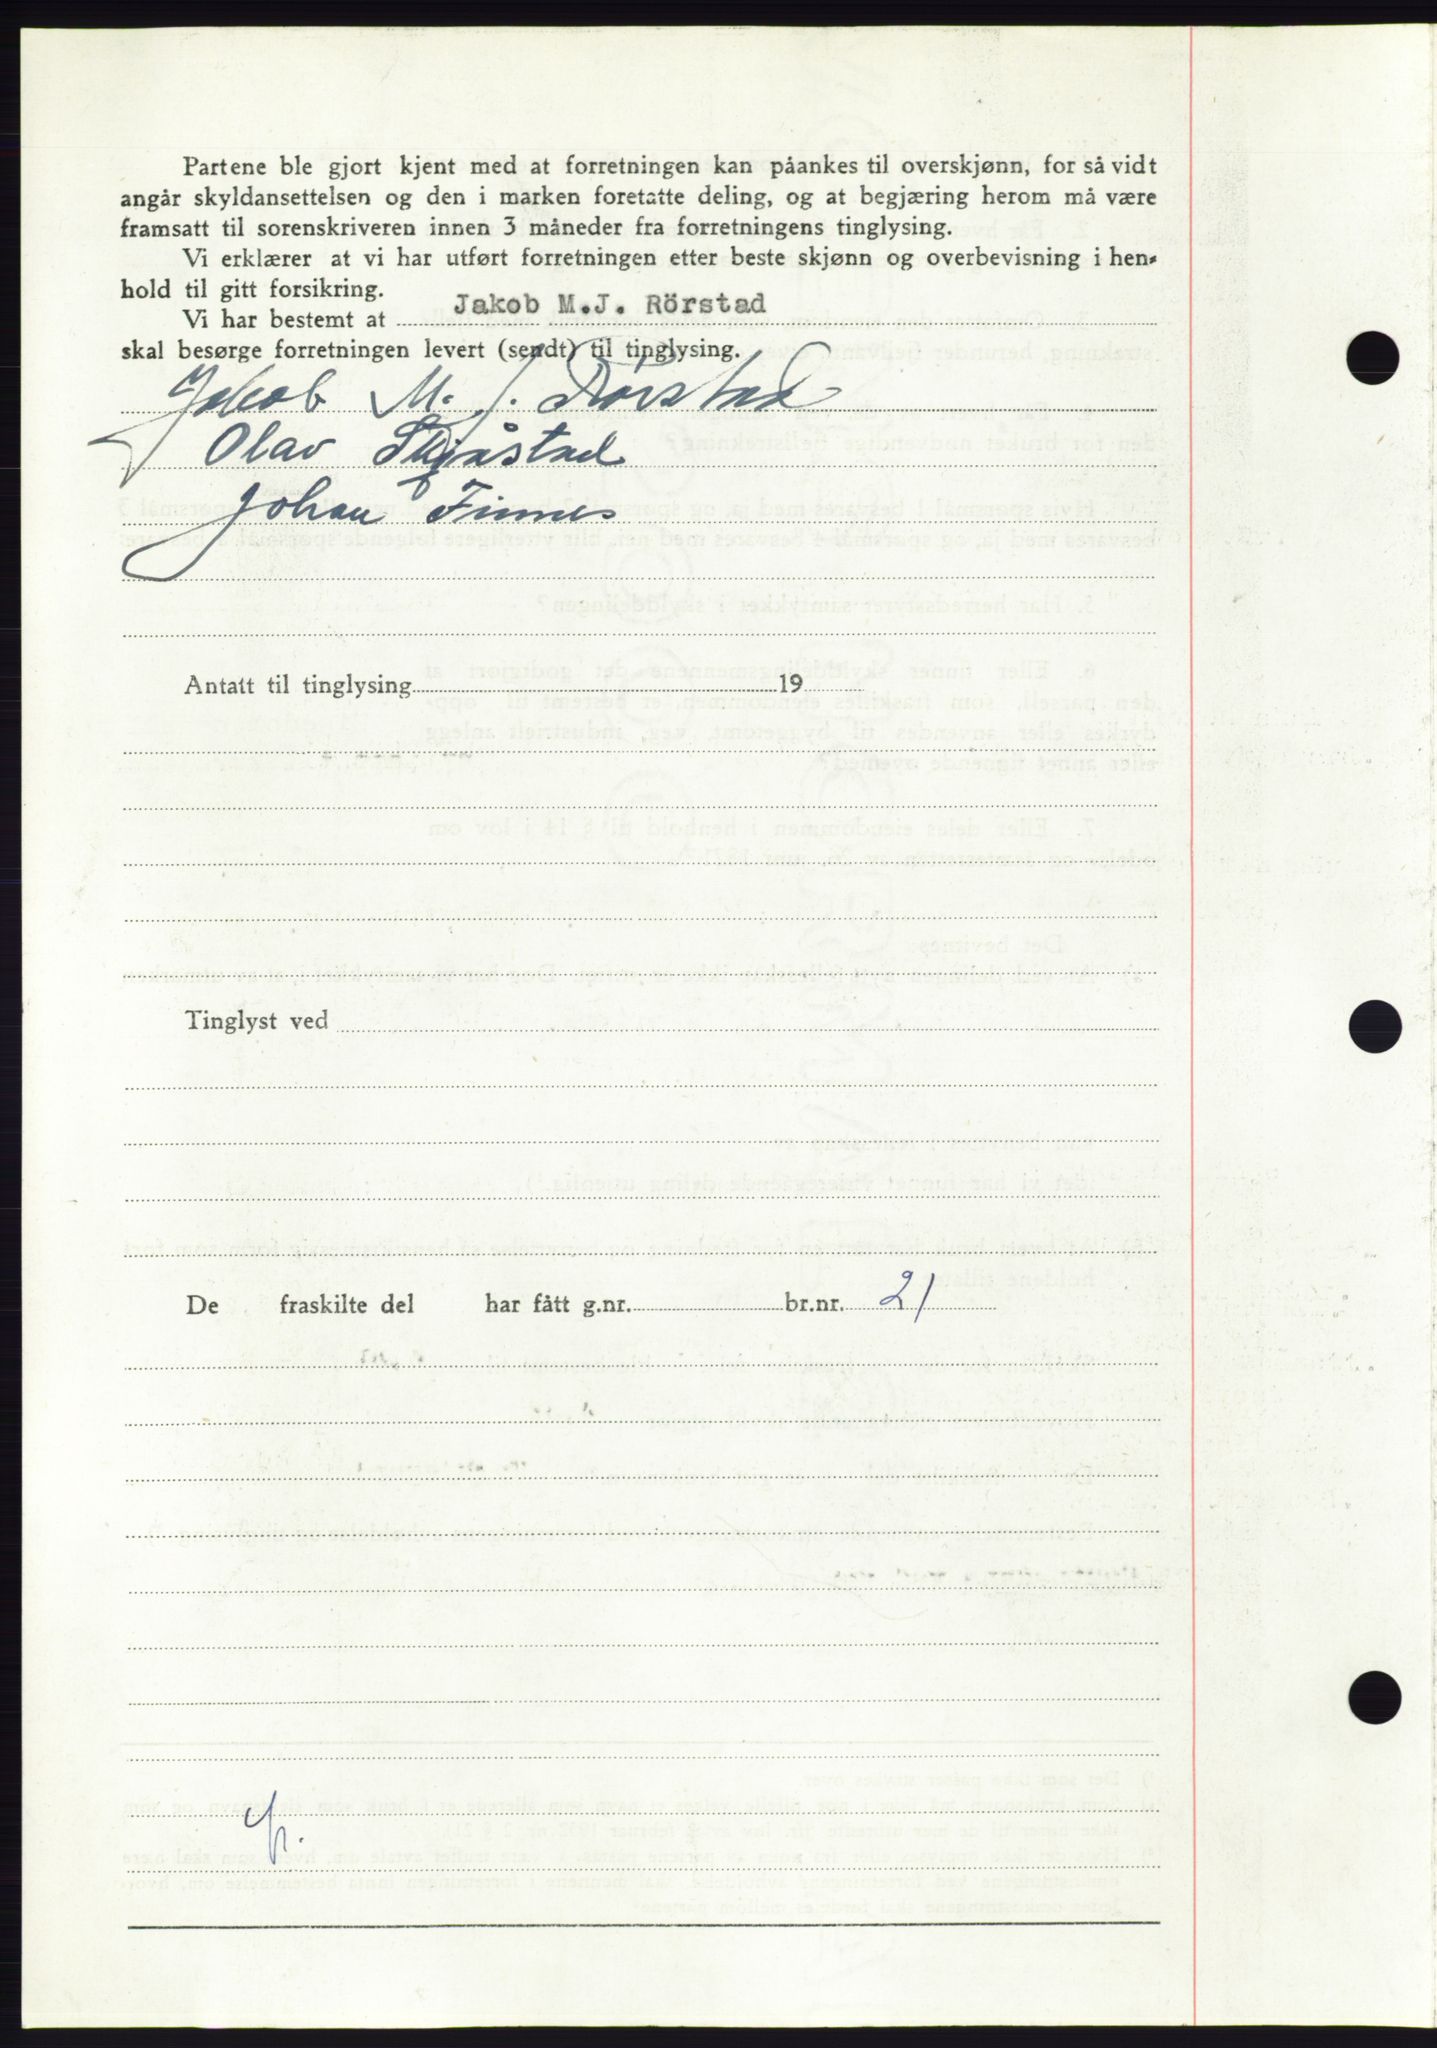 Partene ble gjort kjent med at forretningen kan påankes til overskjønn, for så vidt
angår skyldansettelsen og den i marken foretatte deling, og at begjæring herom må være
framsatt til sorenskriveren innen 3 måneder fra forretningens tinglysing.
Vi erklærer at vi har utført forretningen etter beste skjønn og overbevisning i hen-
hold til gitt forsikring.
Vi har bestemt at Jakob M.J. Rörstad
skal besørge forretningen levert (sendt) til tinglysing.
Jakob M. J. Rörstad
Olav Skjåstad
Johan Finnes
Antatt til tinglysing 19
Tinglyst ved
De fraskilte del har fått g.nr. br.nr. 21